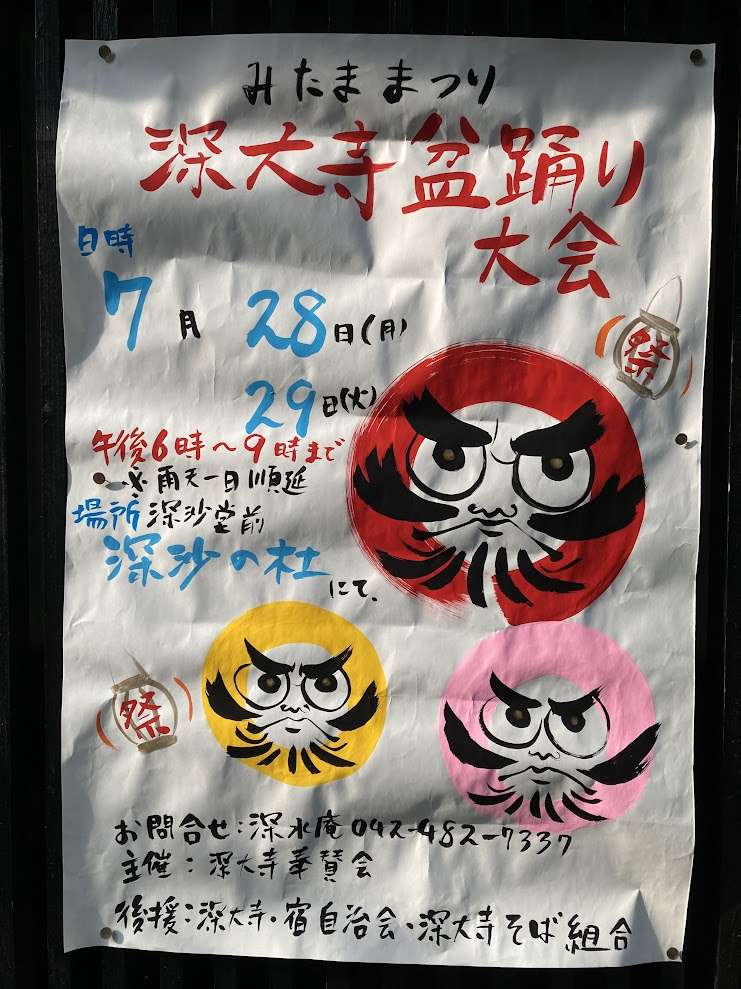 みたままつり
深大寺盆踊り
大会
日時
7月 28日(月)
29日(火)
午後6時～9時まで
※雨天一日順延
場所 深沙堂前
深沙の杜
にて、
祭
祭
お問合せ:深水庵042-482-7337
主催:深大寺華賛会
後援:深大寺・宿自治会・深大寺そば組合